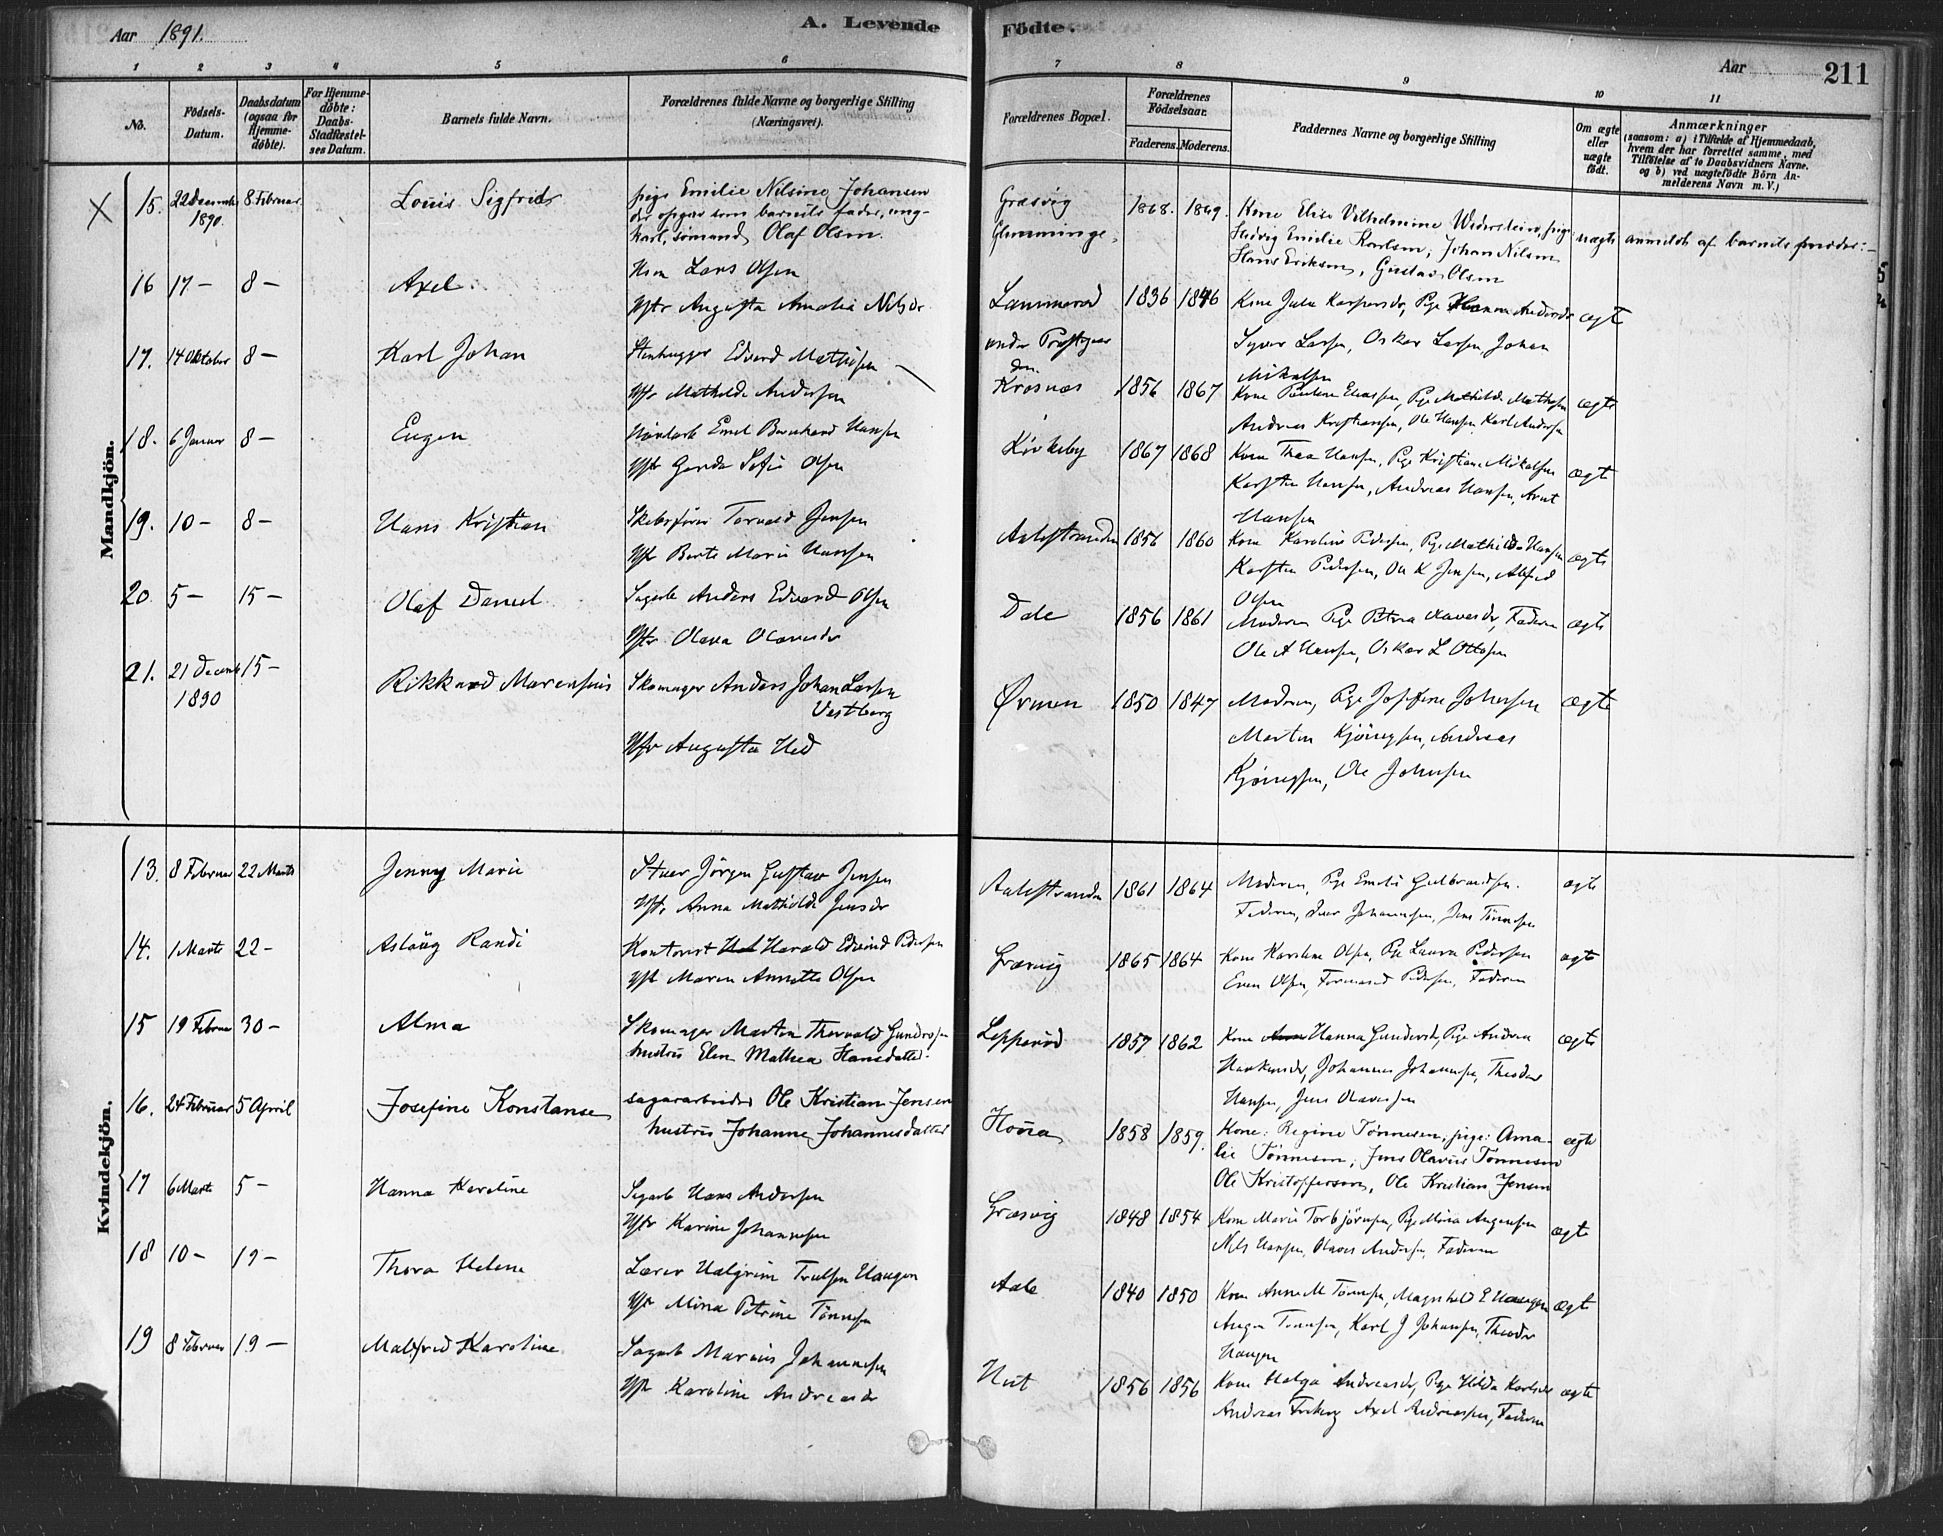 Aar 1891.
A. Levende
Födte.
Aar
211
1
2
3
4
5
6
7
8
9
10
11
No.
Födsels-
Datum.
Daabsdatum
(ogsaa for
Hjemme-
döbte).
For Hjemme-
döbte:
Daabs-
Stadfæstel-
ses Datum.
Barnets fulde Navn.
Forældrenes fulde Navne og borgerlige Stilling
(Næringsvei).
Forældrenes Bopæl.
Forældrenes
Födselsaar.
Faderens.
Moderens.
Faddernes Navne og borgerlige Stilling
Om ægte
eller
uægte
födt.
Anmærkninger
(saasom: a) i Tilfælde af Hjemmedaab,
hvem der har forrettet samme, med
Tilföielse af to Daabsvidners Navne.
og b) ved uægtefödte Börn An-
melderens Navn m. V.)
Mandkjön.
15. 22 December 1890. 8 Februar Louis Sigfrids
pige Emilie Nilsine Johansen
der opgav som barnets fader, ung-
karl, sømand Olaf Olsen.
Græsvig
Glemminge.
1868. 1869.
Kone Elise Vilhelmine Widersteen, pige
Hedvig Emilie Karlsen, Johan Nilsen
Hans Eriksen, Gustav Olsen
uægte anmeldt af barnets moder:
16 17 – 8 – Axel
Lars Olsen
Hstr Augusta Amalia Nilsdr.
Lammerød
under Præstegaar
den.
1836 1846
Kone Julie Kaspersdr, Pige Hanna Andersdr
Syver Larsen, Oskar Larsen, Johan
Mikalsen
ægte
17. 14 Oktober 8 – Karl Johan
Stenhugger Edvard Mathisen
Hstr Mathilde Andersen
Krosnæs
1856 1867
Kone Pauline Eliassen, Pige Mathilde Mathisen
Andreas Kristiansen, Ole Hansen, Karl Andersen
ægte
18. 6 Januar 8 – Eugen
Høvlarb Emil Bernhard Hansen
Hstr Gerda Sofie Olsen
Kirkeby
1867 1868
Kone Thea Hansen, Pige Kristiane Mikalsen
Karsten Hansen, Andreas Hansen, Arnt
Hansen
ægte
19. 10 – 8 – Hans Kristian
Skibsfører Torvald Jensen
Hstr Berte Marie Hansen
Aalestranden
1856 1860
Kone Karoline Pedersen, Pige Mathilde Hansen
Karsten Pedersen, Ole K Jensen, Alfred
Olsen
ægte
20. 5 – 15 – Olaf Daniel
Sagarb Anders Edvard Olsen
Hstr. Olava Olavesdr
Dale
1856 1861
Moderen Pige Petra Olavesdr, Faderen
Ole A Hansen, Oskar L Ottosen
ægte
21. 21 Decemb 1890 15 – Rikkard Marensius
Skomager Anders Johan Larsen
Vestberg
Hstr Augusta Hed
Ørmen
1850 1847
Moderen, Pige Josefine Johansen
Martin Kjönigsen, Andreas
Kjönigsen, Ole Johnsen
ægte
Kvindekjön.
13. 8 Februar 22 Marts Jenny Marie
Stuer Jörgen Gustav Jensen
Hstr. Anna Mathilde Jensdr
Aalestranden
1861 1864
Moderen, Pige Emilie Gulbrandsen.
Faderen, Iver Johannesen, Jens Tönnesen
ægte
14. 1 Marts 22 – Aslaüg Randi
Kontorist Harald Edvind Pedersen
Hstr Maren Annette Olsen
Græsvig
1865 1864
Kone Karoline Olsen, Pige Laura Pedersen
Even Olsen, Fernand Pedersen, Faderen
ægte
15 19 Februar 30 – Alma
Skomager Martin Thorvald Gundersen
hustru Elen Mathea Hansdatter.
Lepperød
1857 1862
Kone Hanna Gundersdr, Pige Andrea
Haakensdr, Johannes Johannesen, Theodor
Hansen, Jens Olavessen
ægte
16. 24 Februar 5 April Josefine Konstanse
sagarbeider Ole Kristian Jensen
hustru Johanne Johannesdatter
Houra
1858 1859.
Kone: Regine Tønnesen, pige: Ama-
lie Tønnesen, Jens Olavüs Tønnesen
Ole Kristoffersen, Ole Kristian Jensen
ægte
17 6 Marts 5 – Hanna Karoline
Sagarb Hans Andersen
Hstr Karine Johannesen
Græsvig
1848 1854
Kone Marie Torbjørnsen, Pige Mina Augensen
Nils Hansen, Olaves Andersen, Faderen
ægte
18 10 – 19 – Thora Helene
Lærer Halgrim Trulsen Haugen
Hstr Mina Petrine Tønnesen
Aale
1840 1850
Kone Anne M Tønnesen, Magnhild E Haugen
August Tønnesen, Karl J Johansen, Theodor
Haugen
ægte
19 8 Februar 19 – Malfred Karoline
Sagarb Marius Johannesen
Hstr Karoline Andreasdr
Hut
1856 1856
Kone Helga Andreasdr, Pige Hilda Karlsdr
Andreas Axel Andreassen, Faderen
ægte